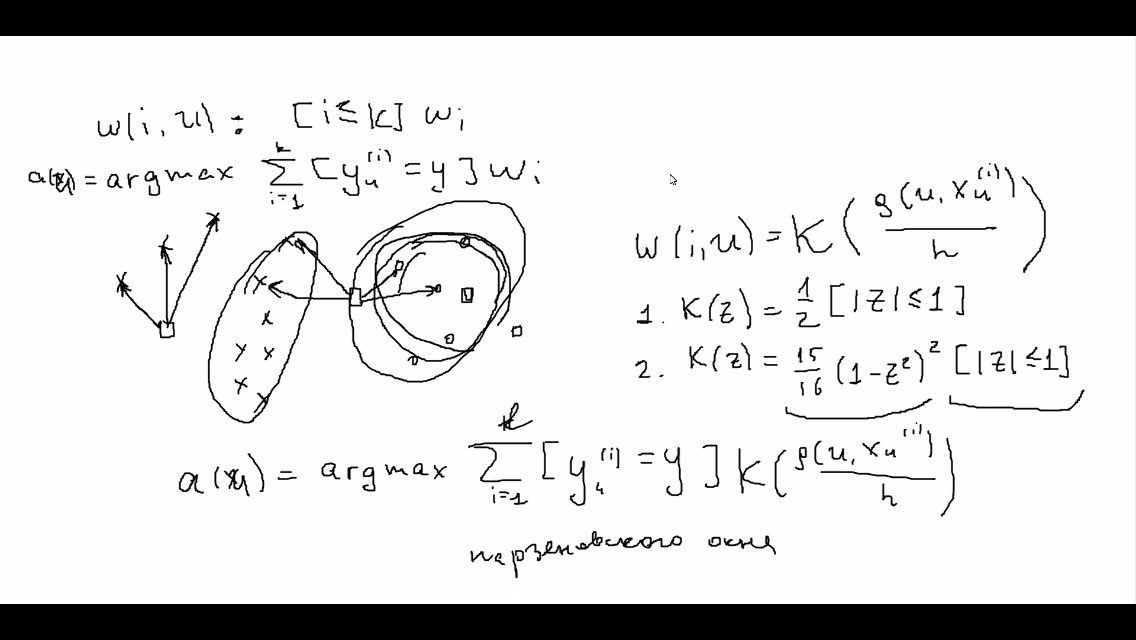 w(i, u) : [i ≤ k] w_i
a(u) = argmax \sum_{i=1}^{k} [y_u^{(i)} = y] w_i
w(i, u) = K(ρ(u, x_u^{(i)}) / h)
1. K(z) = 1/2 [|z| ≤ 1]
2. K(z) = 15/16 (1 - z^2)^2 [|z| ≤ 1]
a(u) = argmax \sum_{i=1}^{l} [y_u^{(i)} = y] K(ρ(u, x_u^{(i)}) / h)
парзеновского окна